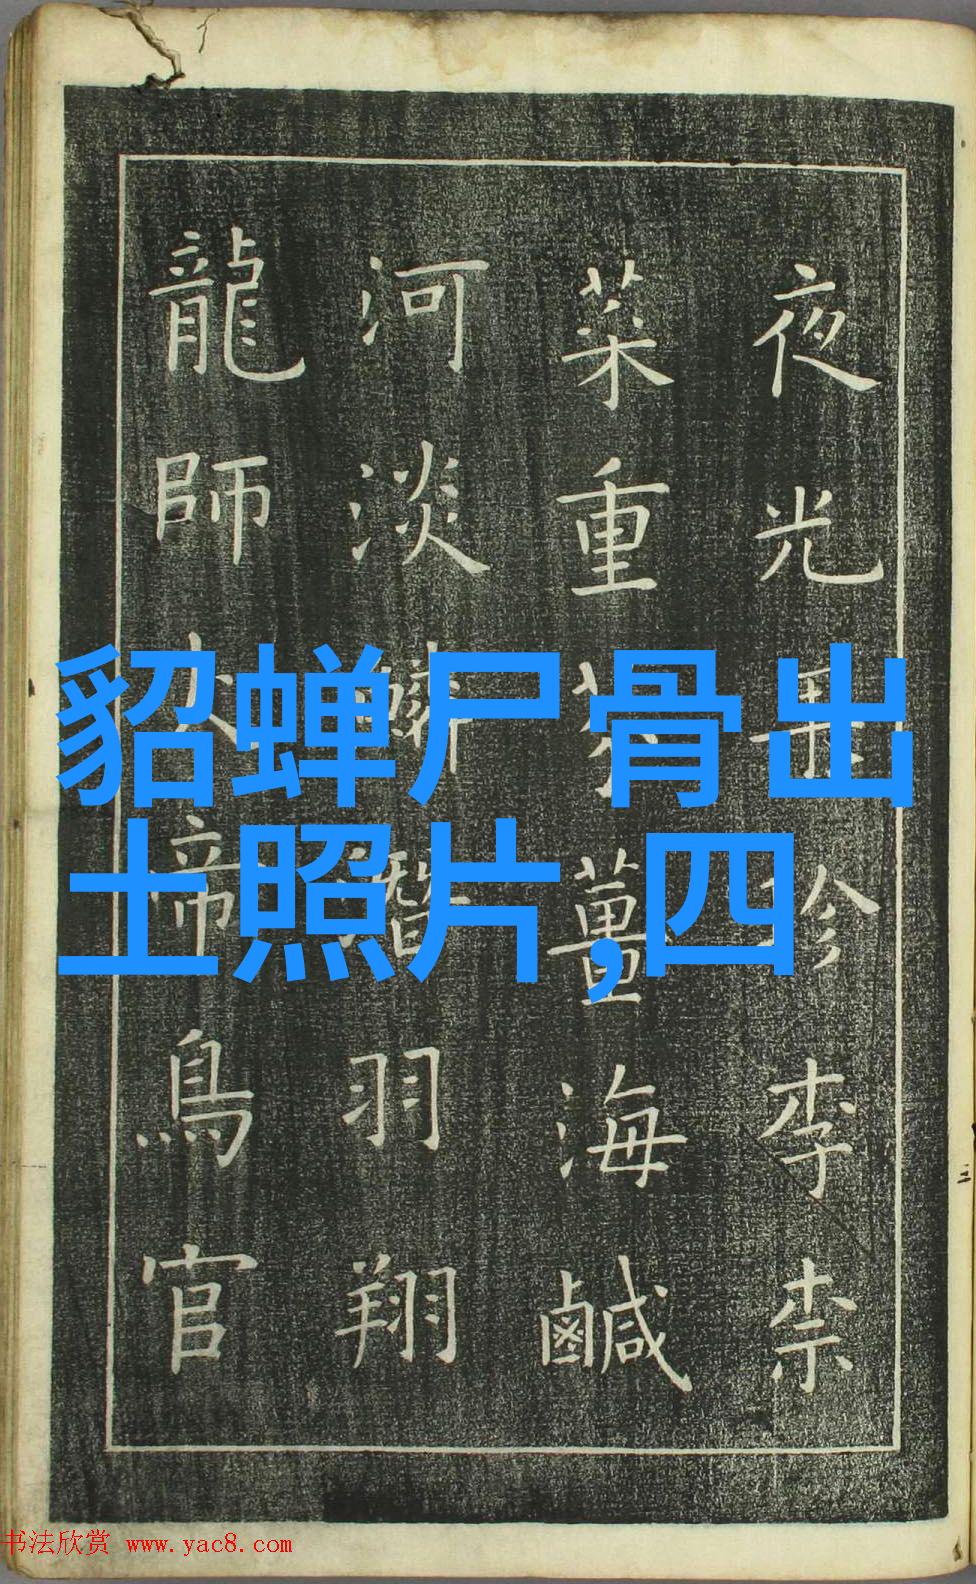 夜光果珍李柰
菜重芥薑海鹹
河淡鱗潛羽翔
龍師火帝鳥官
貂蝉尸骨出
土照片,四
书法欣赏 www.yac8.com